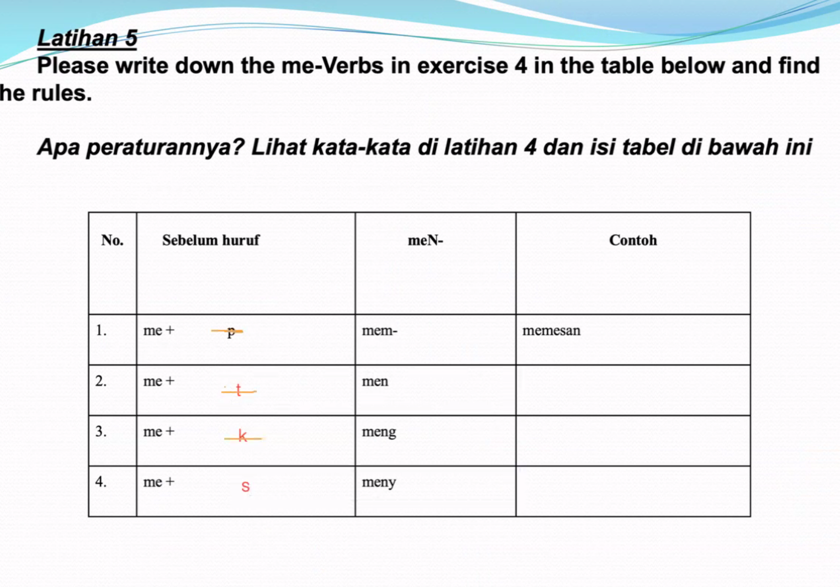 Latihan 5
Please write down the me-Verbs in exercise 4 in the table below and find
he rules.
Apa peraturannya? Lihat kata-kata di latihan 4 dan isi tabel di bawah ini
No. Sebelum huruf meN- Contoh
1. me + p mem- memesan
2. me + t men
3. me + k meng
4. me + s meny